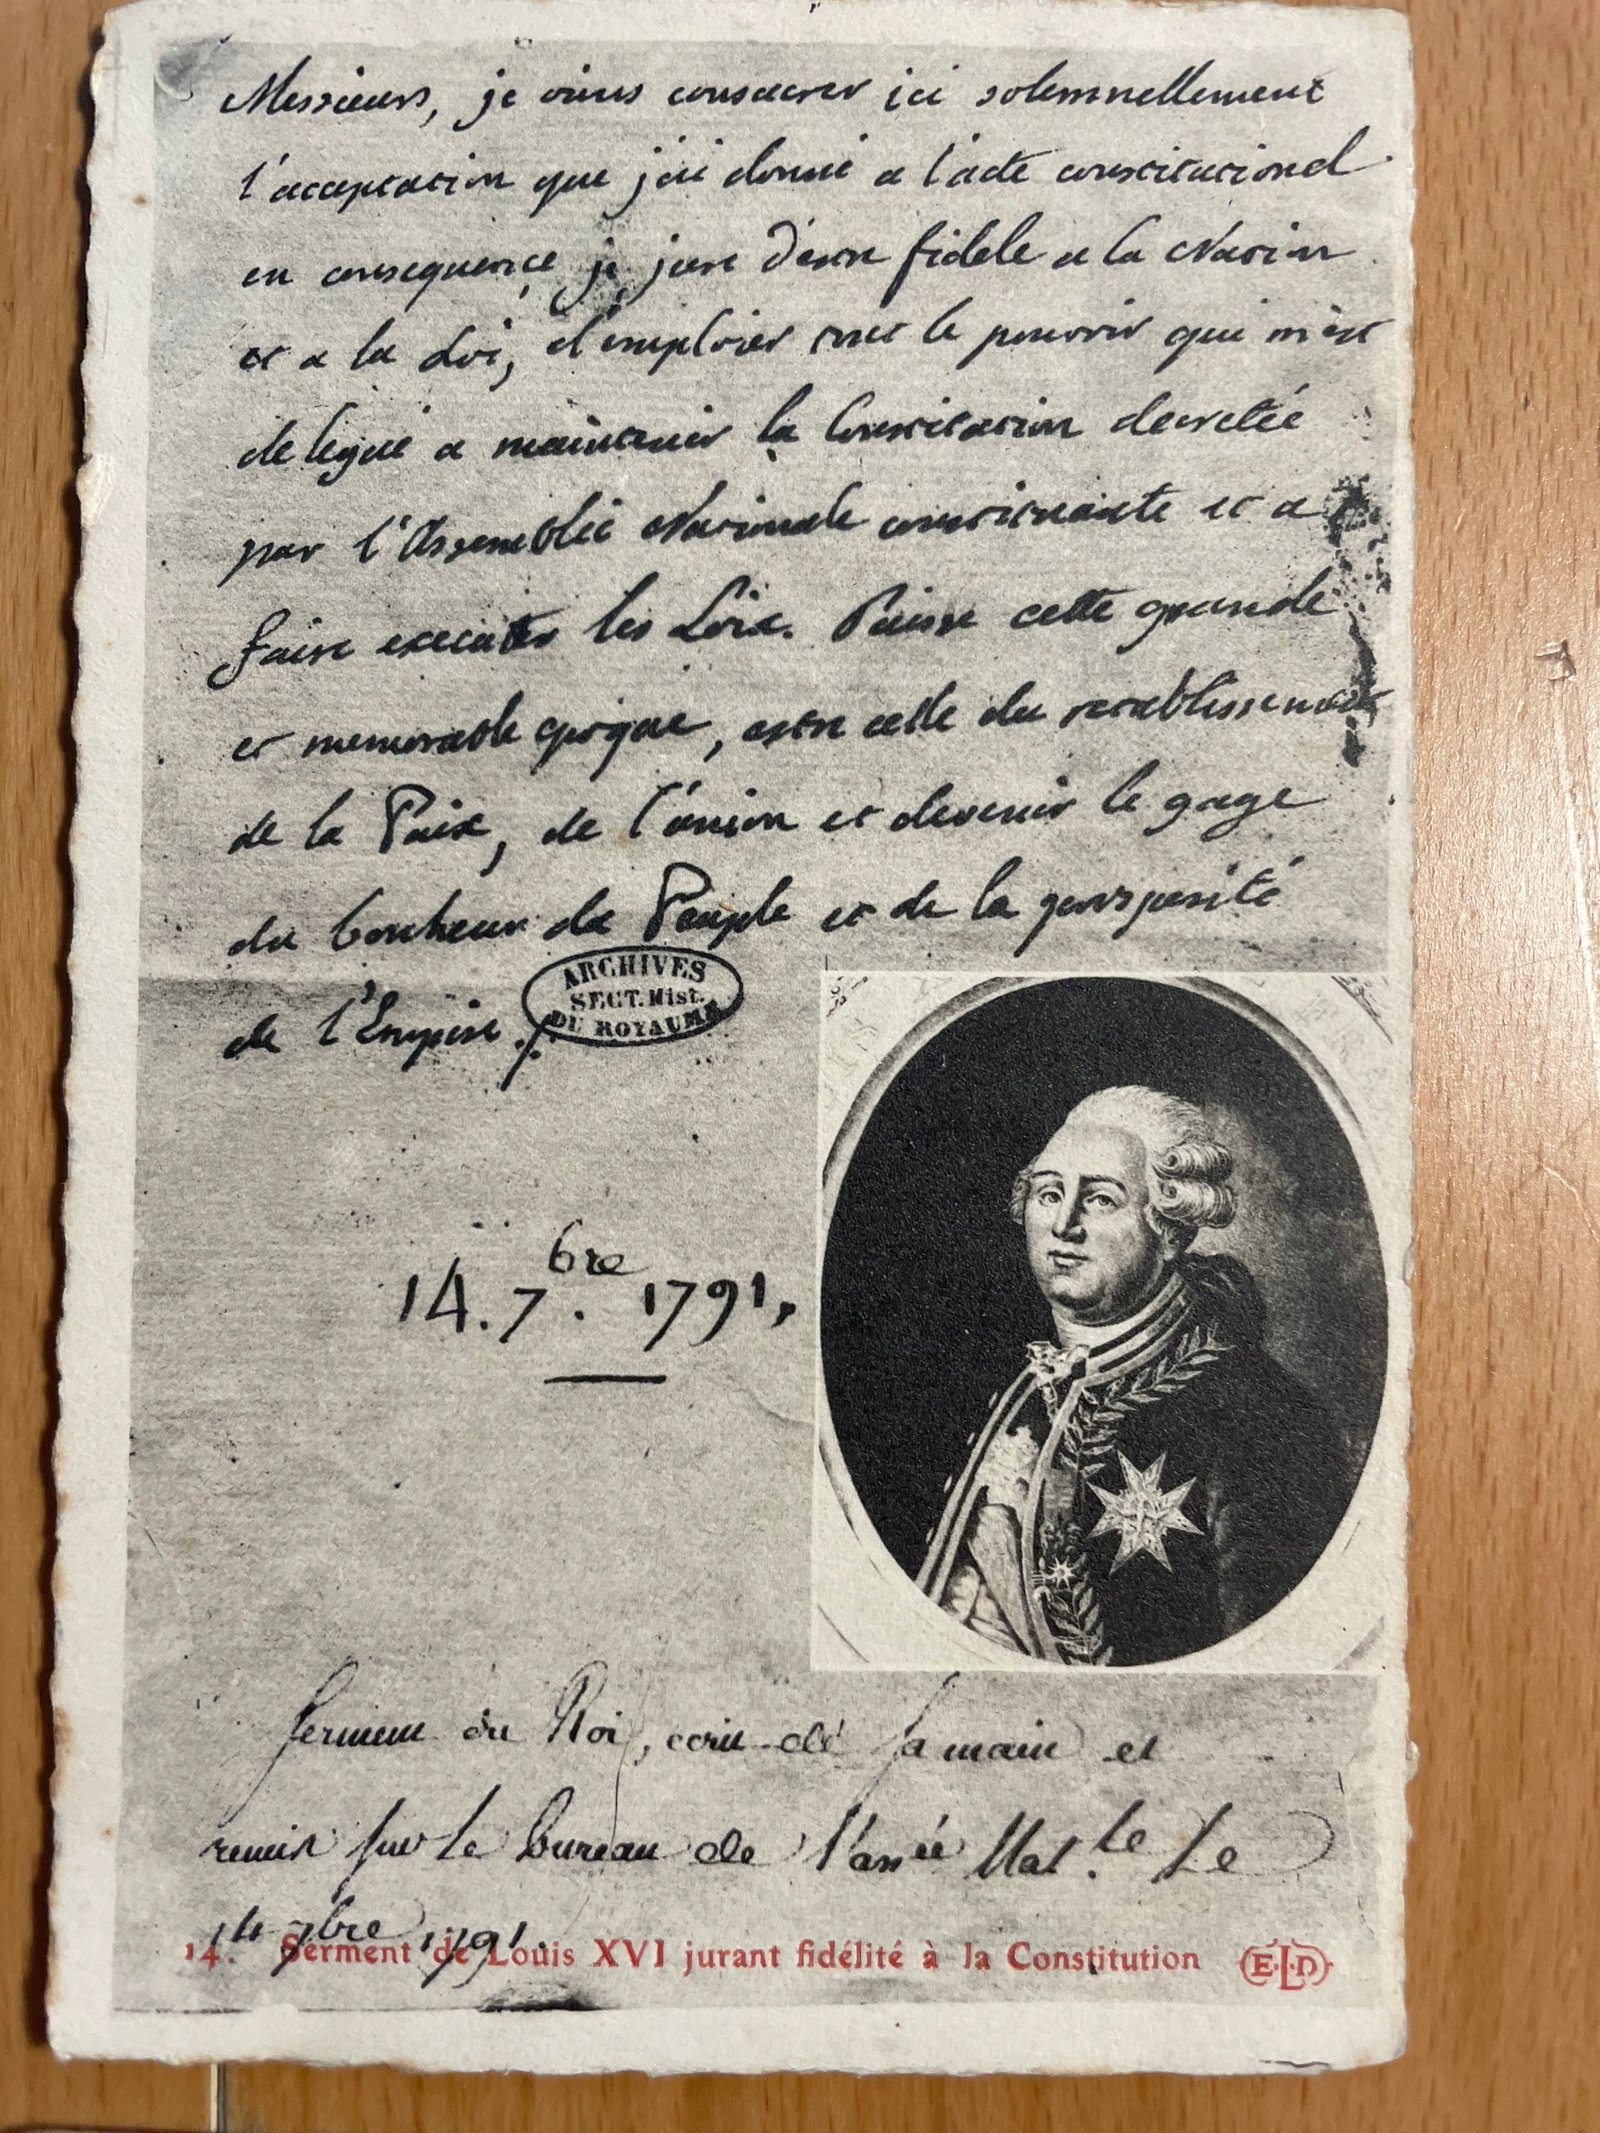 Messieurs, je viens consacrer ici solemnellement
l'acceptation que j'ai donné a l'acte constitutionel
en consequence je jure d'etre fidele a la Nation
et a la Loi, d'emploier tout le pouvoir qui m'est
delegué a maintenir la Constitution decretée
par l'Assemblée Nationale constituante et a
faire executer les Loix. Puisse cette grande
et memorable epoque, etre celle du retablissement
de la Paix, de l'union et devenir le gage
du bonheur du Peuple et de la prosperité
de l'Empire.
ARCHIVES
SECT. Hist.
DU ROYAUME
14. 7.bre 1791.
Serment du Roi, ecrit de sa main et
remis sur le bureau de l'assée Nat.le le
14 7bre 1791.
14. Serment de Louis XVI jurant fidélité à la Constitution E.L.D